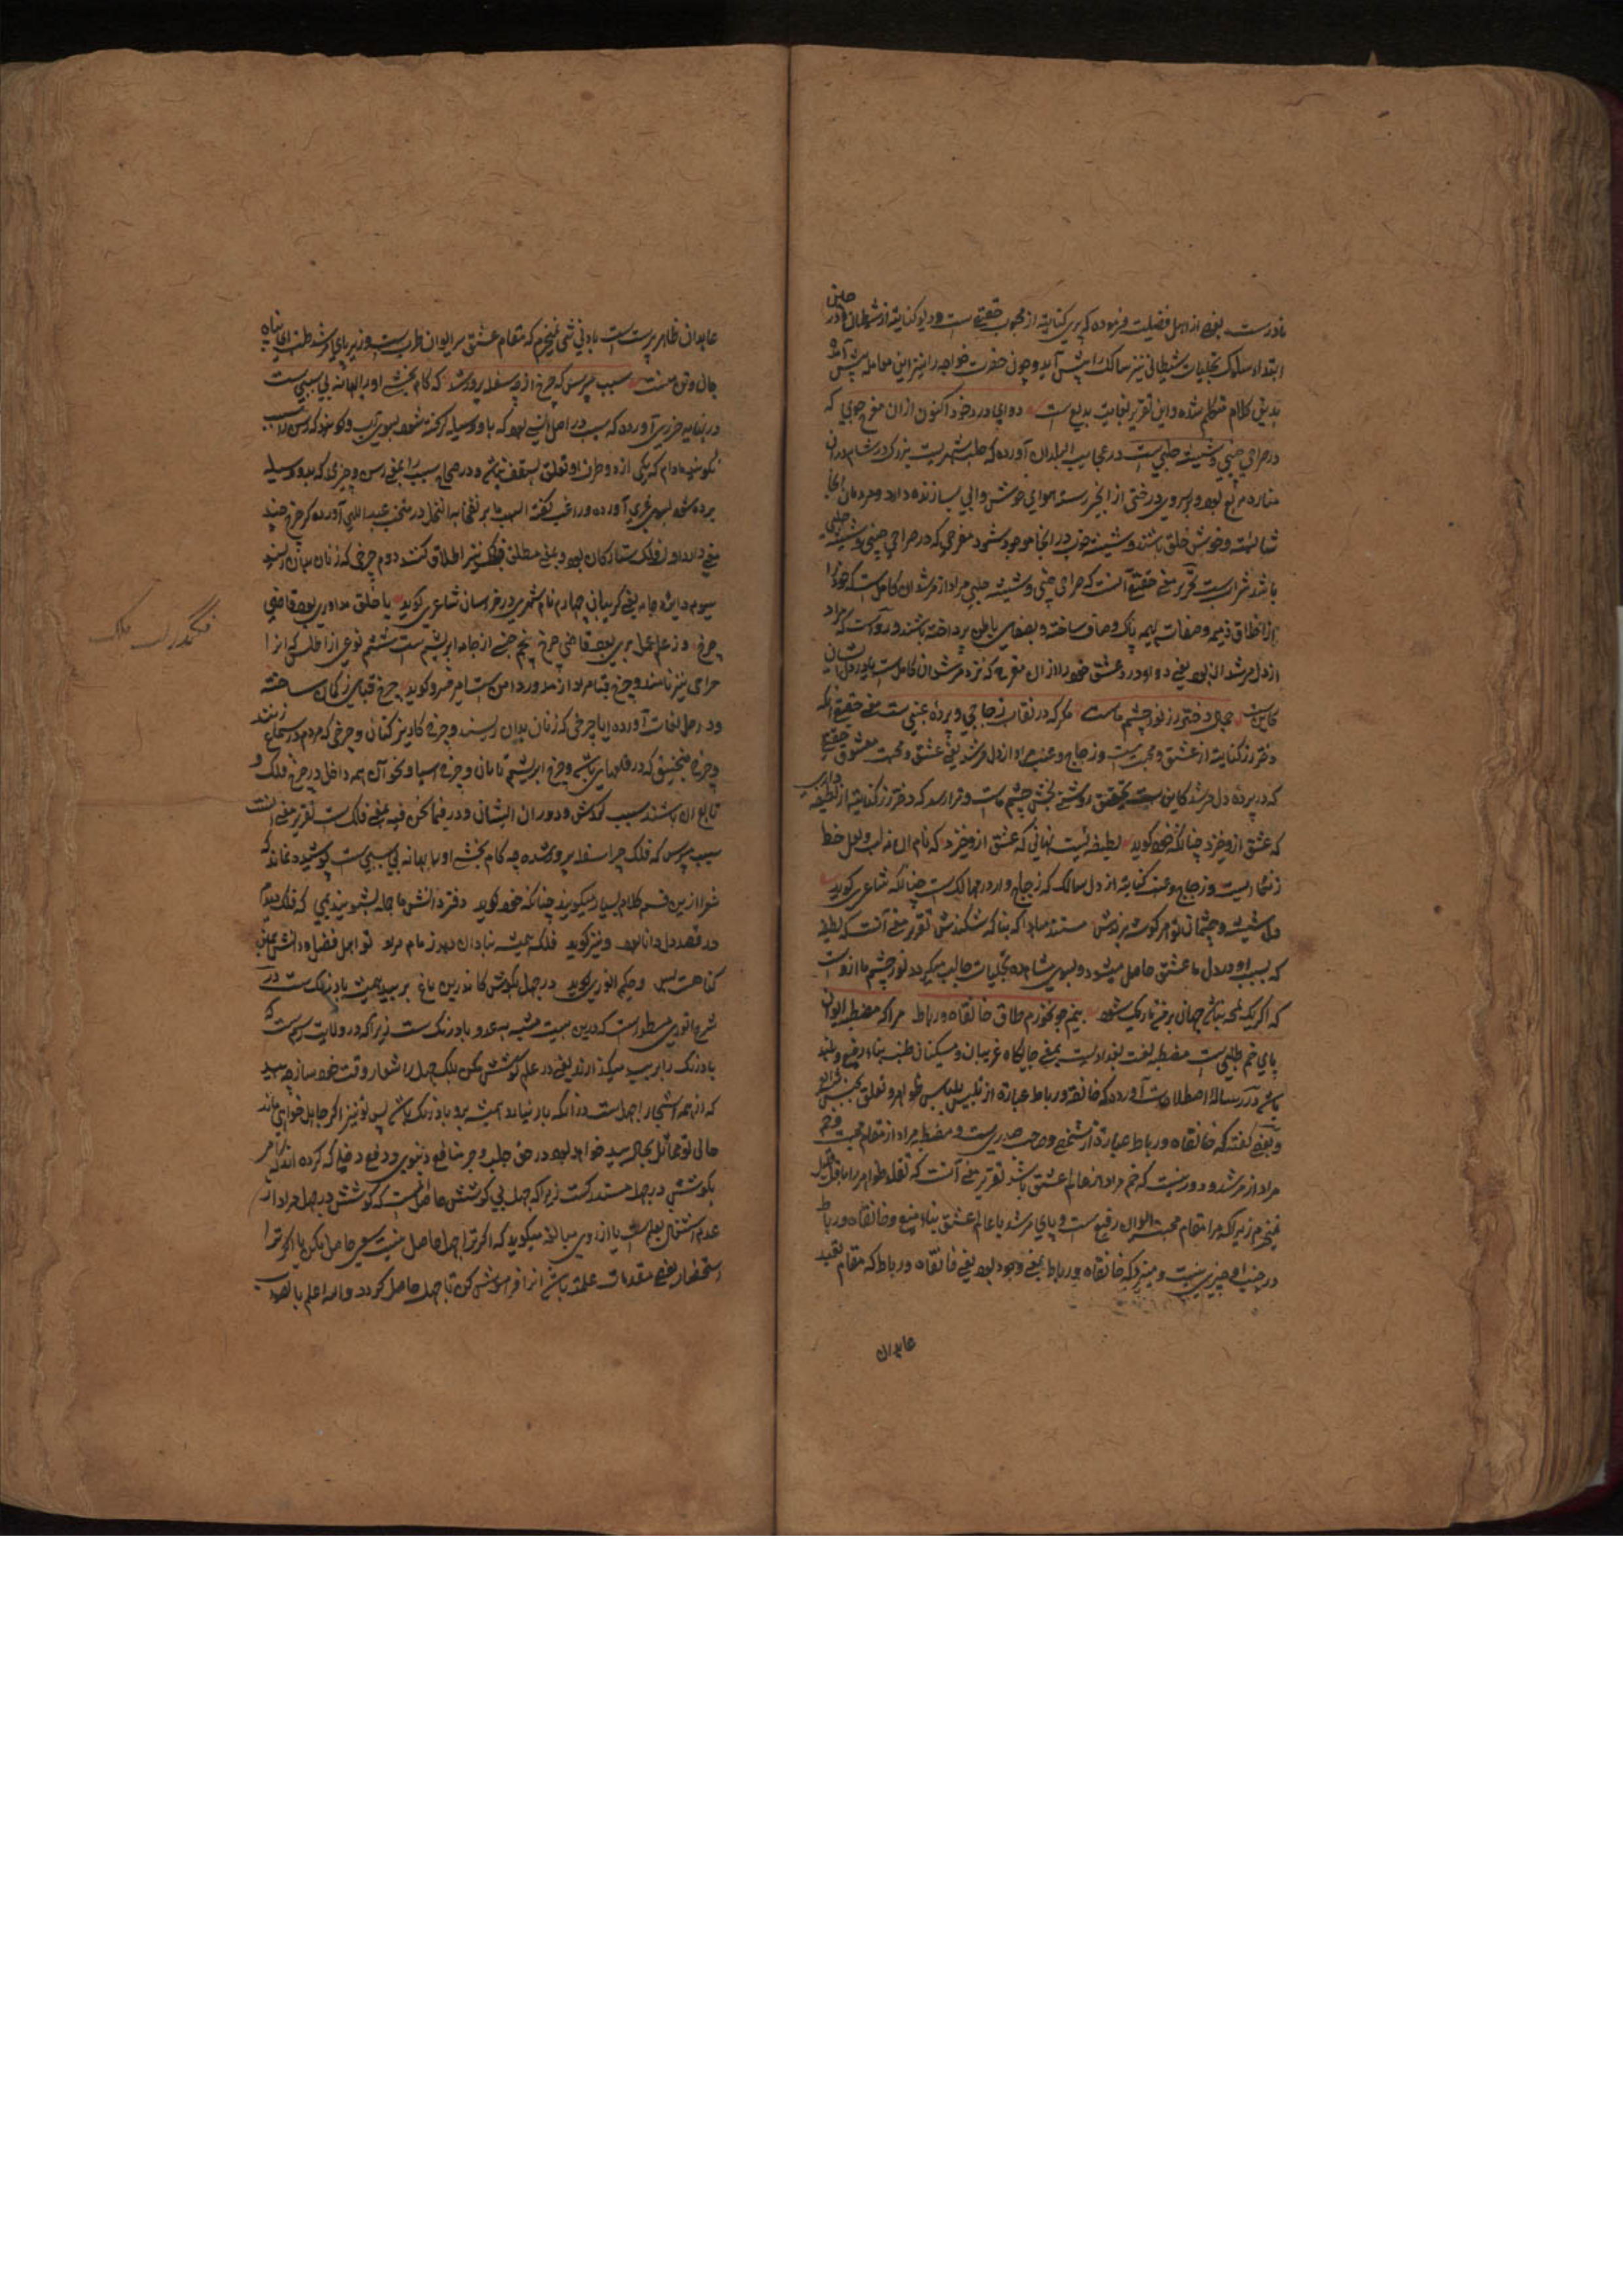 نادرست بعضی از اهل فضیلت فرموده که پری کنایة از محبوب حقیقی ست و دیو کنایة از شیطان در
ابتداء سلوک تجلیات شیطانی نیز سالک را پیش آید و چون حضرت خواجه را نیز این معامله پیش آمده
بدین کلام متکلم شده و این تقریر بغایت بدیع است دوای درد خود اکنون ازان مفرح جوی که
در صراحی چینی و شیشه حلبی ست در عجایب البلدان آورده که حلب شهریست بزرگ در شام دران
مناره مربع بود و برو درختی از انجیر رسته هوای خوش و آبی سازنده دارد و مردمان آنجا
شایسته و خوش خلق باشند و شیشه خوب در آنجا موجود شود مفرحی که در صراحی چینی و شیشه حلبی
باشد شرابست تحریر معنی حقیقی آنست که صراحی چینی و شیشه حلبی مراد از مرشدان کامل ست که خود را
از اخلاق ذمیمه و صفات لئیمه پاک و صاف ساخته و بصفای باطن پرداخته باشند و رواست که مراد
از دل مرشد آن بود یعنی دواء درد عشق خود را ازان مفرح که نزد مرشدان کامل ست یا در دل ایشان
کاین ست جمال دختر رز نور چشم ماست مگر که در نقاب زجاجی و پرده عنبی ست معنی حقیقی آنکه
دختر رز کنایة از عشق و محبت ست و زجاج و عنب مراد از دل مرشد یعنی عشق و محبت معشوق حقیقی
که در پرده دل مرشد کاین ست بتحقیق روشنی بخش چشم ماست و قرار رسد که دختر رز کنایة از لطیفه
که عشق ازو خیزد چنانکه خود گوید لطیفه ئیست نهانی که عشق ازو خیزد که نام آن نه لب لعل و خط
زنگاریست و زجاج و عنب کنایة از دل سالک که زجاج وار در مهالک ست چنانکه شاعری گوید
دل شیشه و چشمان تو هر گوشه برندش مستند مبادا که بناگه شکنندش تقریر معنی آنست که لطیفه
که بسبب او در دل ما عشق حاصل میشود و بسوی مشاهده تجلیات جالب میگردد نور چشم ما ازوست
که اگر یک لمحه نباشد جهان بر من تاریک شود بنیم جو نخرم طاق خانقاه و رباط مرا که مصطبه ایوان
پای خم طنبی ست مصطبه لغت بغدادیست بمعنی جایگاه غریبان و مسکینان طنب بناء رفیع و بلند
باشد در رساله اصطلاحات آورده که خانقه و رباط عبارة از تلبیس بلباس ظواهر و تعلق
و بعضی گفته که خانقاه و رباط عبارة از شیخی و صاحب صدری ست و مصطبه مراد از مقام محبت و خم
مراد از مرشد و دور نیست که خم مراد از عالم عشق باشد تقریر معنی آنست که تعلقه ظواهر را باقل قلیل
نمیخرم زیراکه مرا مقام محبت ایوان رفیع ست و پای مرشد یا عالم عشق بناء منیع و خانقاه و رباط
در جنب او چیزی نیست و میشود که خانقاه و رباط بمعنی وجود بود یعنی خانقاه و رباط که مقام تقید
عابدان
عابدان ظاهر پرست ست بادنی شی نمیخرم که مقام عشق مرا ایوان طرب ست و زیر پای مرشد طنب ای پناه
جان و تن منست سبب مپرس که چرخ از چه سفله پرور شد که کام بخشی او را بهانه بی سببی ست
در نهایه جزری آورده که سبب در اصل رسنی بود که باو وسیله گرفته شود بسوی آب و گویند که رسن را سبب
نگویند مادام که یکی از دو طرف او تعلق بسقف نباشد و در صحاح سبب بمعنی رسن و چیزی که بدو وسیله
برده شود بسوی غیری آورده و راغب گفته السبب ما یرتقی به النخل در منتخب عبداللهی آورده که چرخ چند
معنی دارد اول فلک ستارگان بود و بمعنی مطلق فلک نیز اطلاق کنند دوم چرخی که زنان بدان ریسند
سیوم دایره جامه یعنی گریبانی چهارم نام شهریست در خراسان شاعری گوید با خلق مداوری بود قاضی
چرخ و ز علم عمل بری بود قاضی چرخ پنجم جنسی از جامه ابریشم ست ششم نوعی از اطلس که آنرا
حرامی نیز نامند و چرخ قبا مراد از مدور دامن ست امیر خسرو گوید چرخ قبایی ز کمان ساخته
و در اصل لغات آورده ایا چرخی که زنان بدان ریسند و چرخه کاریز کنان و چرخی که مردم در سماع زنند
و چرخ منجنیق که در قلعهای باشد و چرخ ابریشم تابان و چرخه آسیا و نحو آن همه داخل در چرخ فلک و
تابع آن باشند بسبب گردش و دوران ایشان و در فیما نحن فیه بمعنی فلک ست تقریر معنی آنست
سبب مپرس که فلک چرا سفله پرور شده چه کام بخشی او را بهانه بی سببی ست پوشیده نماند که
شعرا ازین قسم کلام بسیار میگویند چنانکه خود گوید دفتر دانش ما جمله بشویند بمی که فلک دیدم و
در قصد دل دانا بود و نیز گوید فلک بمیشه بنادان دهد زمام مراد تو اهل فضلی و دانش همین
گناهت بس و حکیم انوری گوید در جهل بکوش کاندرین باغ بر بید همیشه بادرنگ ست در
شرح انوری مسطور است که درین بیت مشبه به عدو بادرنگ ست زیراکه در ولایت رسم ست که
بادرنگ را بر بید میگذارند یعنی در علم کوشش مکن بلک جهل را شعار وقت خود ساز چه بید
که از همه اشجار اجهل ست در آنکه بار نیارد همیشه برو بادرنگ باشد پس تو نیز اگر جاهل خواهی ماند
حالی تو مماثل بحال بید خواهد بود در حق جلب و جر منافع دنیوی و دفع دفعی که کرده اند که امر
بکوشش در جهل مستدرک ست زیراکه جهل بی کوشش حاصل ست که کوشش در جهل مراد از
عدم اشتغال بعلم ست یا از روی مبالغه میگوید که اگر ترا جهل حاصل نیست سعی حاصل کن یا اگر ترا
استحضار بعضی مقدمات علمیه باشد آنرا فراموش کن تا جهل حاصل گردد والله اعلم بالصواب